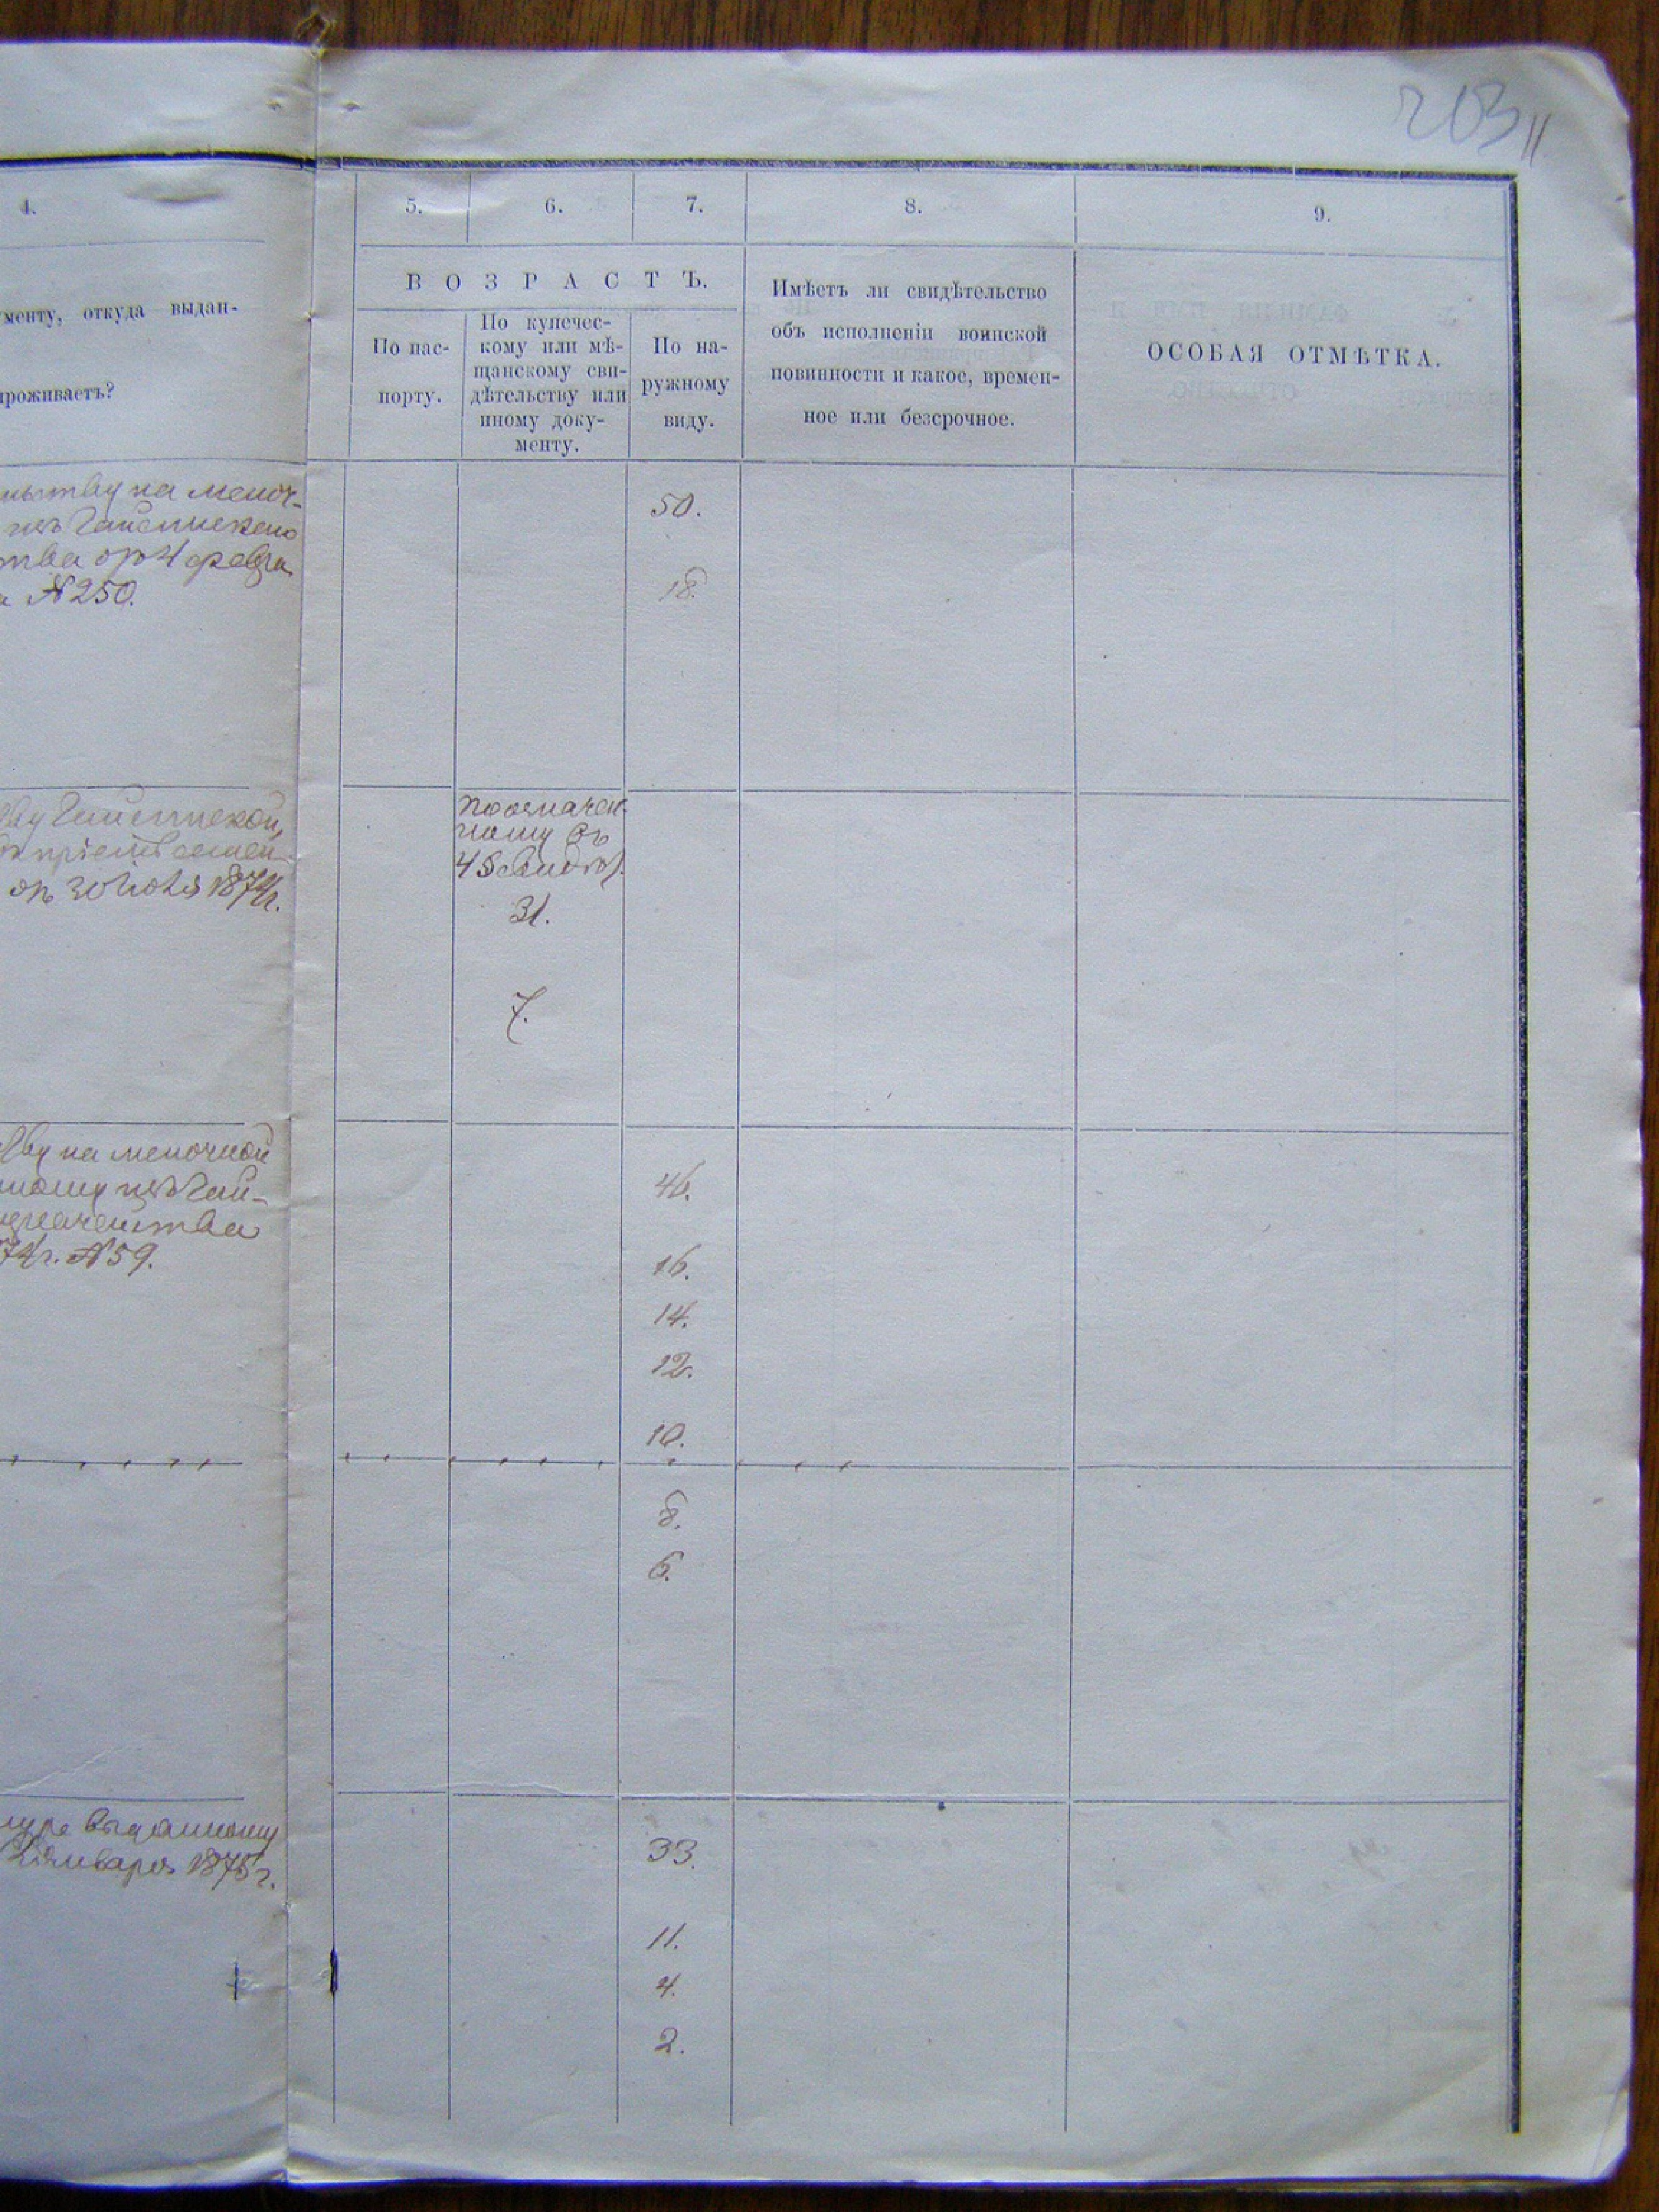 203
4. 5. 6. 7. 8. 9.
ВОЗРАСТЪ.
менту, откуда выдан-
проживаетъ?
По пас-
порту.
По купечес-
кому или мѣ-
щанскому сви-
дѣтельству или
иному доку-
менту.
По на-
ружному
виду.
Имѣетъ ли свидѣтельство
объ исполненіи воинской
повинности и какое, времен-
ное или безсрочное.
ОСОБАЯ ОТМѢТКА.
на мелоч-
изъ Гайсинскаго
ства отъ 4 февра
№ 250.
50.
18.
Гайсинской
отъ 30 1874 г.
по означен-
ному въ
4
31.
7.
на мелочной
ному изъ Гай-
значейства
74 г. № 59.
46.
16.
14.
12.
10.
8.
6.
выданному
января 1875 г.
33.
11.
4.
2.